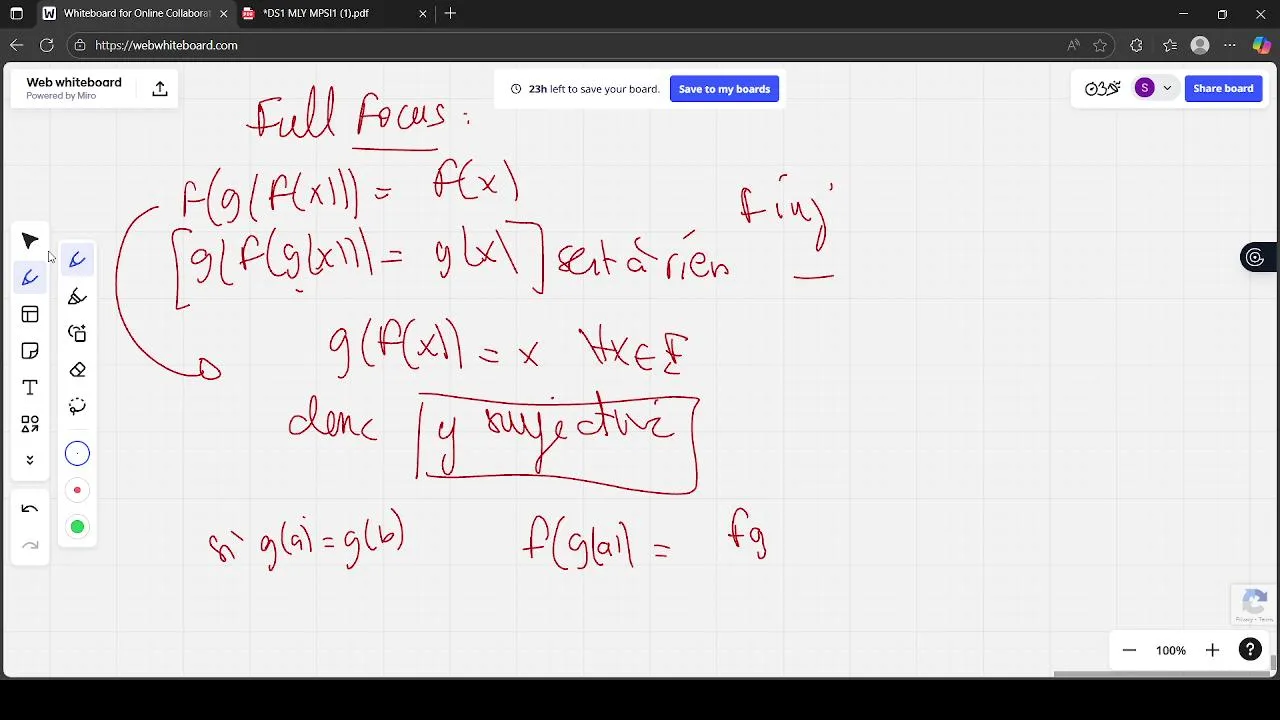 Whiteboard for Online Collaborat
*DS1 MLY MPSI1 (1).pdf
https://webwhiteboard.com
Web whiteboard
Powered by Miro
23h left to save your board.
Save to my boards
S
Share board
Full Focus :
f(g(f(x))) = f(x)
f inj
[g(f(g(x))) = g(x)] sert à rien
g(f(x)) = x ∀x∈E
donc g surjective
si g(a) = g(b) f(g(a)) = fg
100%
Privacy - Terms